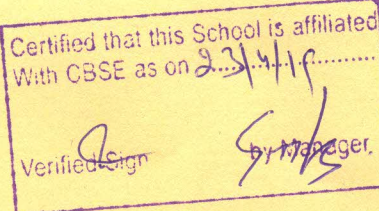 Certified that this School is affiliated
With CBSE as on 23/4/19
Verified Sign by Manager.